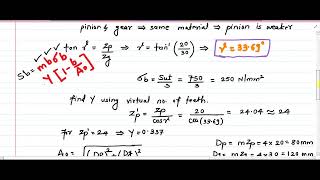 pinion & gear → same material → pinion is weaker
tan γ = Zp/Zg ⇒ γ = tan⁻¹(20/30) ⇒ γ = 33.69°
Sb = mbσb Y[1 - b/A0]
σb = Sut/3 = 750/3 = 250 N/mm²
find Y using virtual no. of teeth.
Zp' = Zp/cosγ = 20/cos(33.69) = 24.04 ≈ 24
For Zp' = 24 → Y = 0.337
Dp = mZp = 4×20 = 80mm
A0 =
Dg = mZg = 4×30 = 120 mm